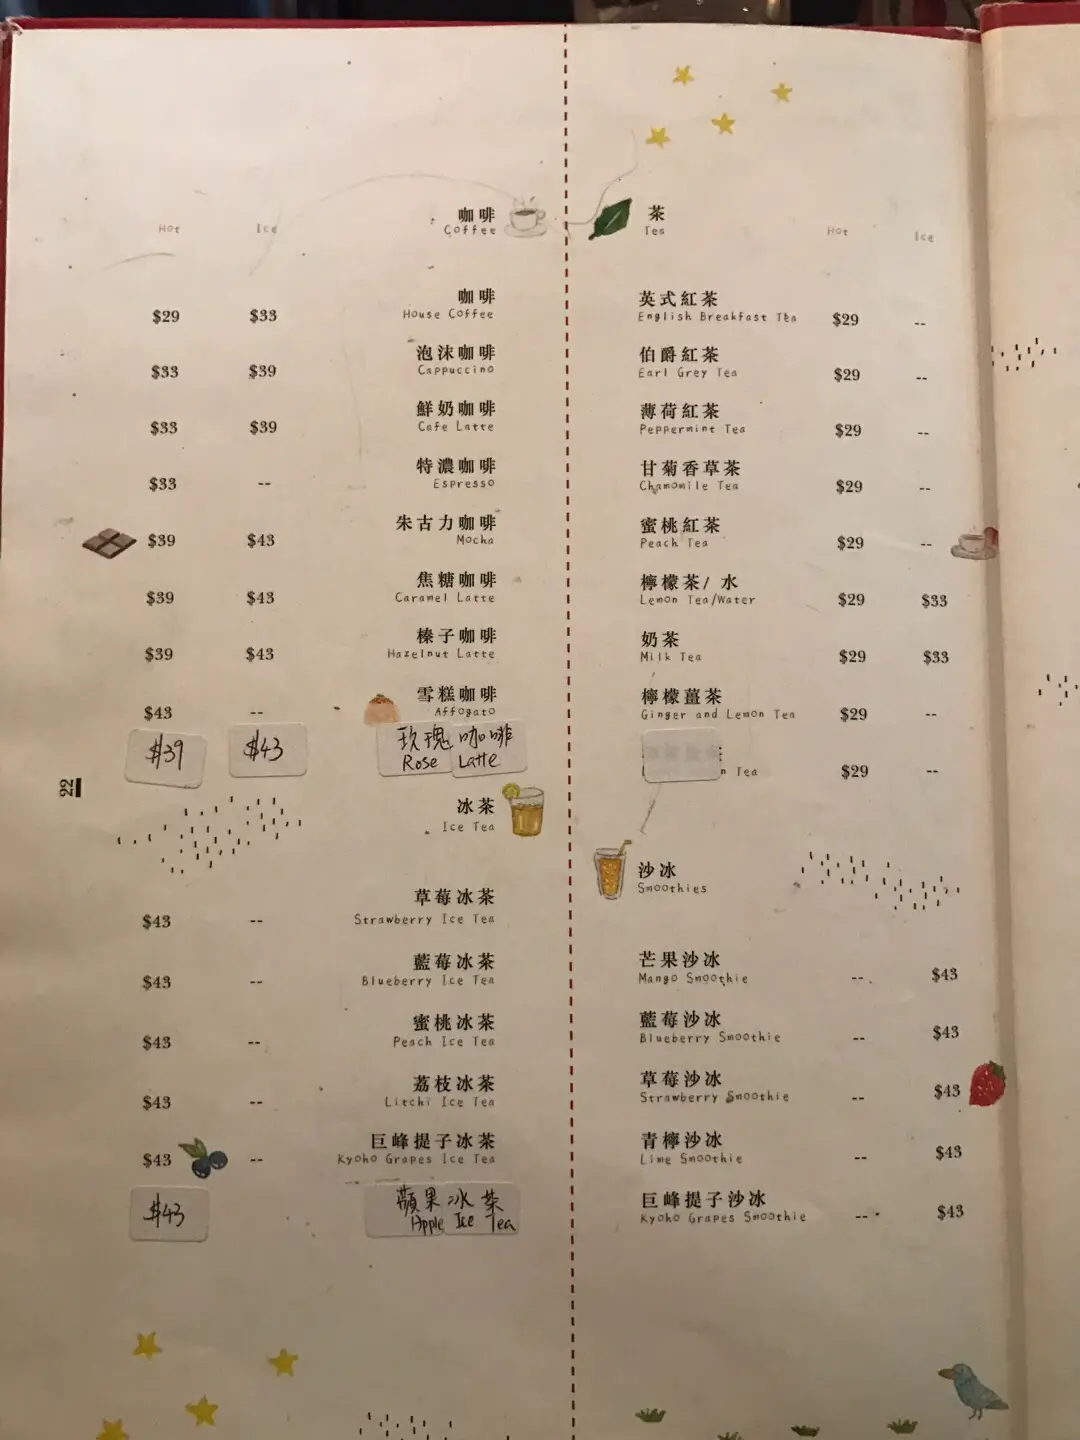 咖啡
Hot Ice Coffee
咖啡
$29 $33 House Coffee
泡沫咖啡
$33 $39 Cappuccino
鮮奶咖啡
$33 $39 Cafe Latte
特濃咖啡
$33 -- Espresso
朱古力咖啡
$39 $43 Mocha
焦糖咖啡
$39 $43 Caramel Latte
榛子咖啡
$39 $43 Hazelnut Latte
雪糕咖啡
$43 -- Affogato
$39 $43 玫瑰咖啡
Rose Latte
22
冰茶
Ice Tea
草莓冰茶
$43 -- Strawberry Ice Tea
藍莓冰茶
$43 -- Blueberry Ice Tea
蜜桃冰茶
$43 -- Peach Ice Tea
荔枝冰茶
$43 -- Litchi Ice Tea
巨峰提子冰茶
$43 -- Kyoho Grapes Ice Tea
$43 蘋果冰茶
Apple Ice Tea
茶
Tea Hot Ice
英式紅茶
English Breakfast Tea $29 --
伯爵紅茶
Earl Grey Tea $29 --
薄荷紅茶
Peppermint Tea $29 --
甘菊香草茶
Chamomile Tea $29 --
蜜桃紅茶
Peach Tea $29 --
檸檬茶/ 水
Lemon Tea/Water $29 $33
奶茶
Milk Tea $29 $33
檸檬薑茶
Ginger and Lemon Tea $29 --
Tea $29 --
沙冰
Smoothies
芒果沙冰
Mango Smoothie -- $43
藍莓沙冰
Blueberry Smoothie -- $43
草莓沙冰
Strawberry Smoothie -- $43
青檸沙冰
Lime Smoothie -- $43
巨峰提子沙冰
Kyoho Grapes Smoothie -- $43